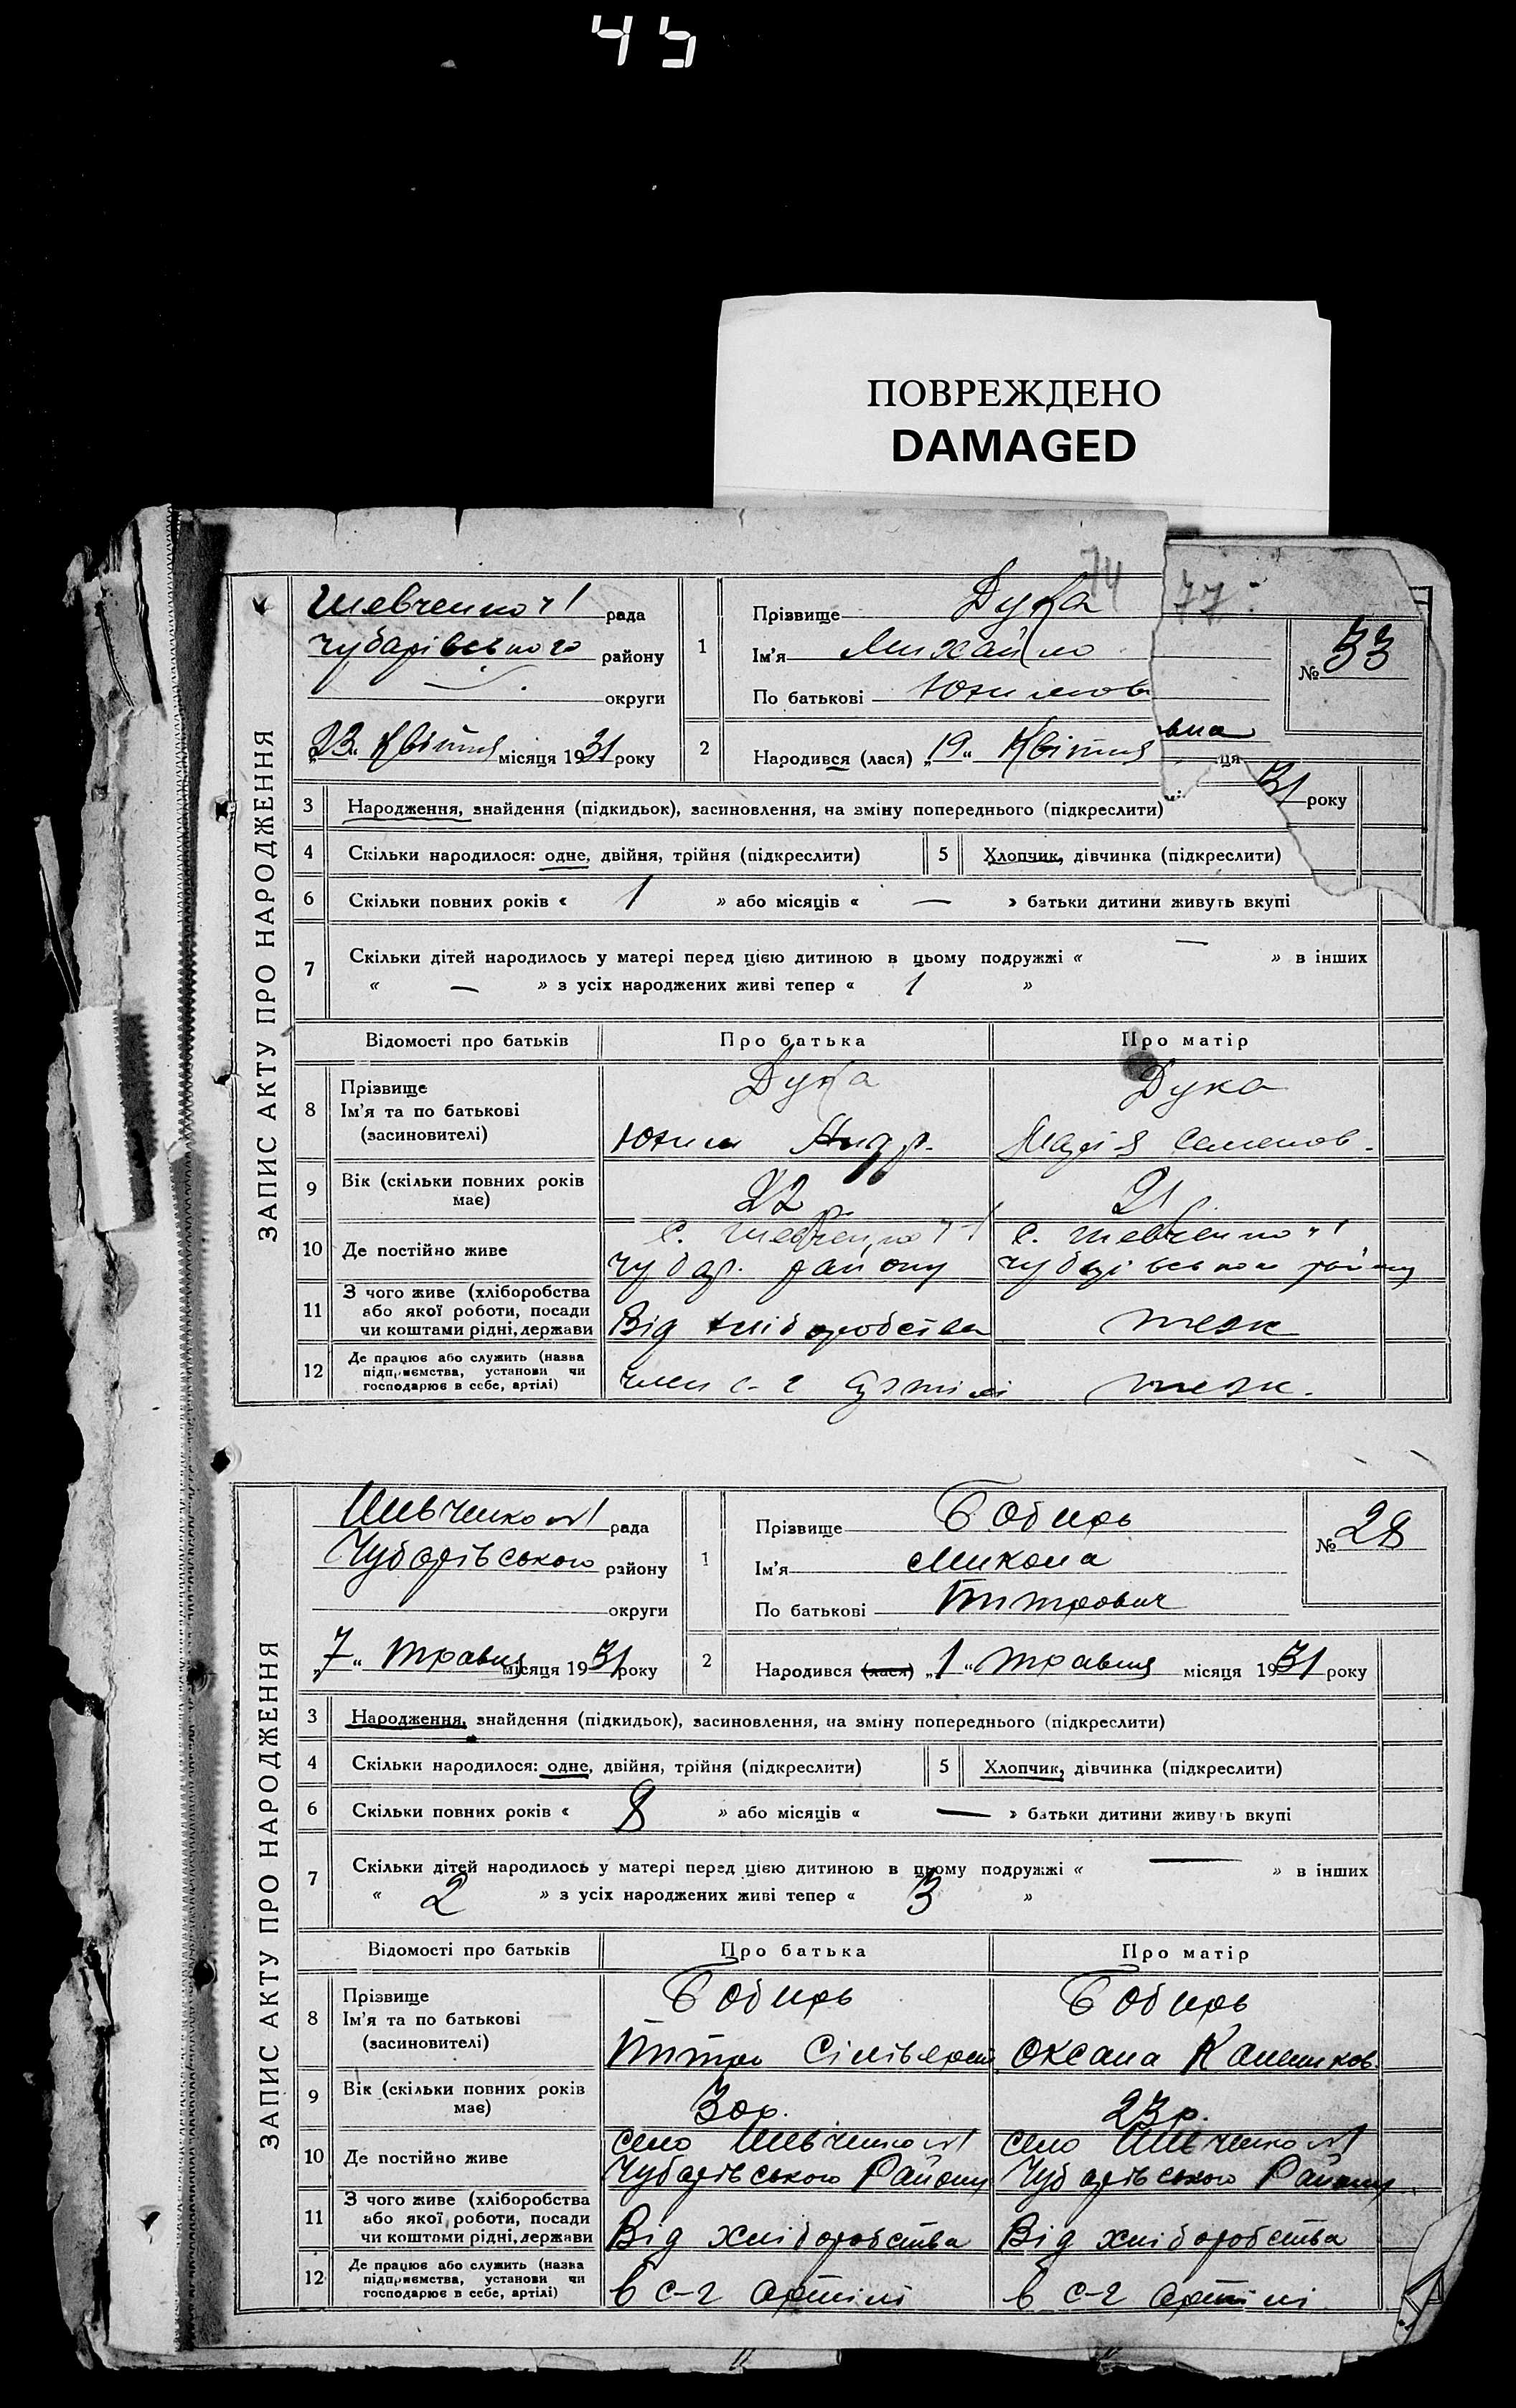 45
ПОВРЕЖДЕНО
DAMAGED
74
77
ЗАПИС АКТУ ПРО НАРОДЖЕННЯ
Шевченко №1 рада
Чубарівського району
округи
„23“ Квітня місяця 1931 року
1 Прізвище Дука
Ім'я Михайло
По батькові Юхимов
№ 33
вна
2 Народився (лася) „19“ Квітня
ця
31 року
3 Народження, знайдення (підкидьок), засиновлення, на зміну попереднього (підкреслити)
4 Скільки народилося: одне, двійня, трійня (підкреслити) 5 Хлопчик, дівчинка (підкреслити)
6 Скільки повних років « 1 » або місяців « — » батьки дитини живуть вкупі
7 Скільки дітей народилось у матері перед цією дитиною в цьому подружжі « — » в інших
« — » з усіх народжених живі тепер « 1 »
Відомості про батьків Про батька Про матір
8 Прізвище Дука Дука
Ім'я та по батькові
(засиновителі) Юхим Андр. Марія Семенов.
9 Вік (скільки повних років має) 22 р. 21 р.
10 Де постійно живе с. Шевченко №1 с. Шевченко №1
Чубар. району Чубарівського району
11 З чого живе (хліборобства
або якої роботи, посади
чи коштами рідні, держави Від хліборобства теж
12 Де працює або служить (назва
підприємства, установи чи
господарює в себе, артілі) член с-г артілі теж.
ЗАПИС АКТУ ПРО НАРОДЖЕННЯ
Шевченко №1 рада
Чубарівського району
округи
„7“ травня місяця 1931 року
1 Прізвище Бобирь
Ім'я Микола
По батькові Питрович
№ 28
2 Народився (лася) „1“ травня місяця 1931 року
3 Народження, знайдення (підкидьок), засиновлення, на зміну попереднього (підкреслити)
4 Скільки народилося: одне, двійня, трійня (підкреслити) 5 Хлопчик, дівчинка (підкреслити)
6 Скільки повних років « 8 » або місяців « — » батьки дитини живуть вкупі
7 Скільки дітей народилось у матері перед цією дитиною в цьому подружжі « — » в інших
« 2 » з усіх народжених живі тепер « 3 »
Відомості про батьків Про батька Про матір
8 Прізвище Бобирь Бобирь
Ім'я та по батькові
(засиновителі) Питро Оксана
9 Вік (скільки повних років має) 30р. 23р.
10 Де постійно живе село Шевченко №1 село Шевченко №1
Чубарівського Району Чубарівського Району
11 З чого живе (хліборобства
або якої роботи, посади
чи коштами рідні, держави Від хліборобства Від хліборобства
12 Де працює або служить (назва
підприємства, установи чи
господарює в себе, артілі) в с-г артілі в с-г артілі